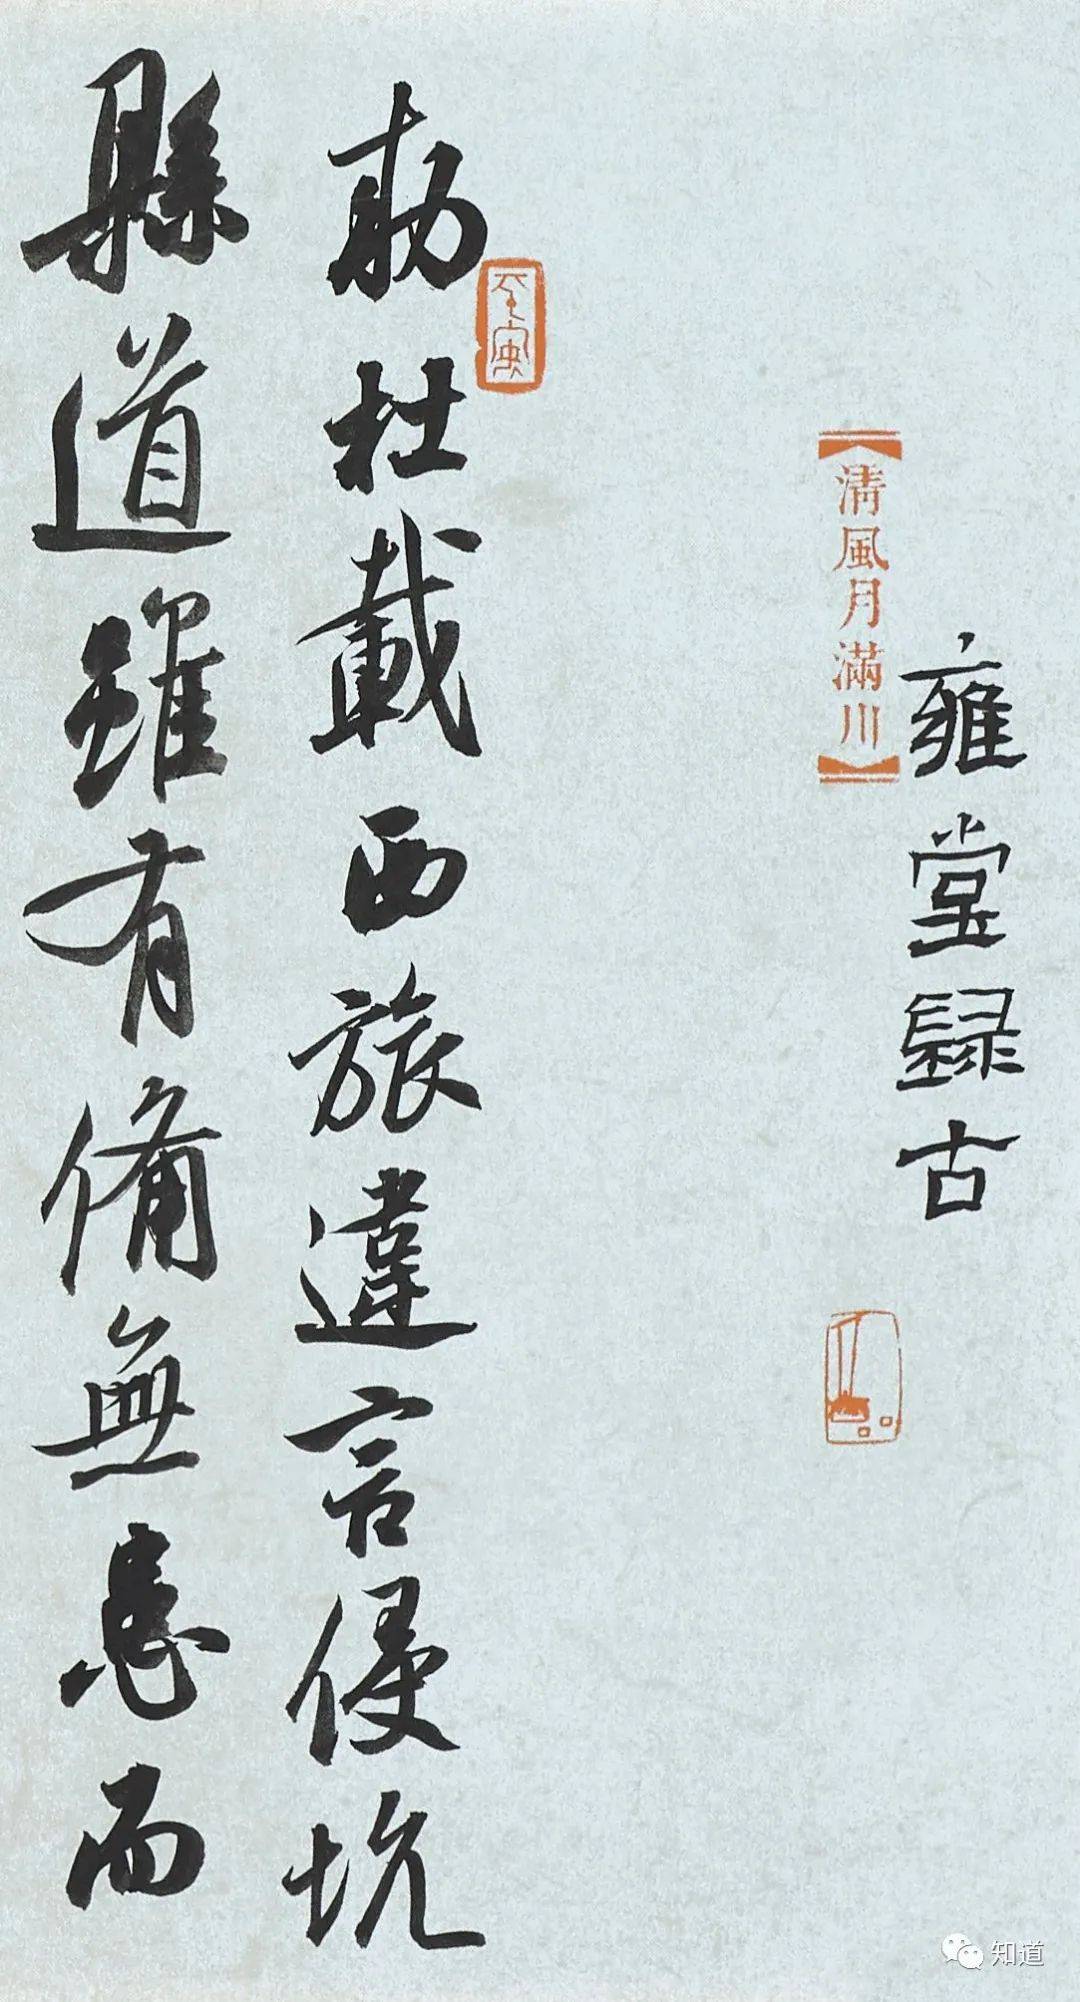 雍堂録古
清風月滿川
勅杜載西旅違言侵坑
縣道雖有備無患而
知道